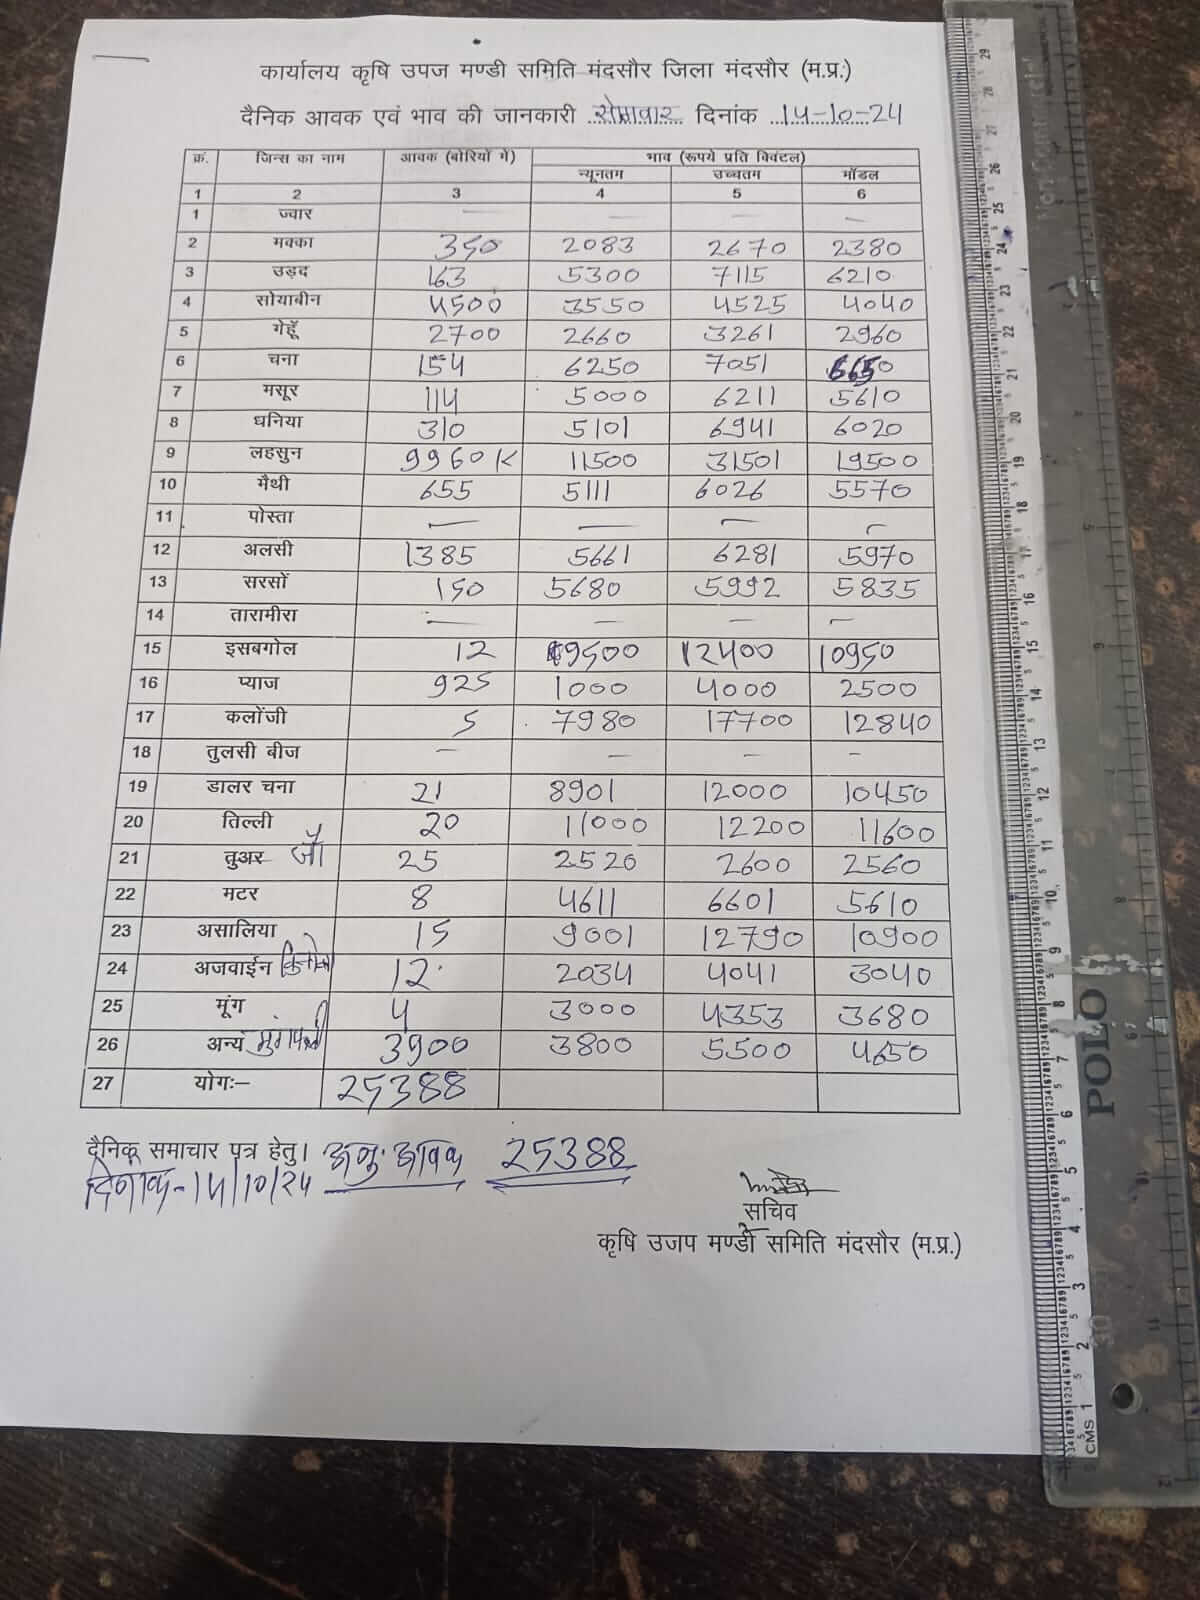 कार्यालय कृषि उपज मण्डी समिति मंदसौर जिला मंदसौर (म.प्र.)
दैनिक आवक एवं भाव की जानकारी सोमवार दिनांक 14-10-24
क्र. जिन्स का नाम आवक (बोरियों में) भाव (रूपये प्रति क्विंटल)
न्यूनतम उच्चतम मॉडल
1 2 3 4 5 6
1 ज्वार — — — —
2 मक्का 350 2083 2670 2380
3 उड़द 163 5300 7115 6210
4 सोयाबीन 4500 3550 4525 4040
5 गेहूॅ 2700 2660 3261 2960
6 चना 154 6250 7051 6650
7 मसूर 114 5000 6211 5610
8 धनिया 310 5101 6941 6020
9 लहसुन 9960 K 11500 31501 19500
10 मैथी 655 5111 6026 5570
11 पोस्ता — — — —
12 अलसी 1385 5661 6281 5970
13 सरसों 150 5680 5992 5835
14 तारामीरा — — — —
15 इसबगोल 12 9500 12400 10950
16 प्याज 925 1000 4000 2500
17 कलोंजी 5 7980 17700 12840
18 तुलसी बीज — — — —
19 डालर चना 21 8901 12000 10450
20 तिल्ली 20 11000 12200 11600
21 तुअर जौ 25 2520 2600 2560
22 मटर 8 4611 6601 5610
23 असालिया 15 9001 12790 10900
24 अजवाईन 12 2034 4041 3040
25 मूंग 4 3000 4353 3680
26 अन्य मुंगफली 3900 3800 5500 4650
27 योगः– 25388
दैनिक समाचार पत्र हेतु। अनु. आवक 25388
दिनांक-14/10/24
सचिव
कृषि उजप मण्डी समिति मंदसौर (म.प्र.)
POLO
CMS 1 2 3 4 5 6 7 8 9 10 11 12 13 14 15 16 17 18 19 20 21 22 23 24 25 26 27 28 29